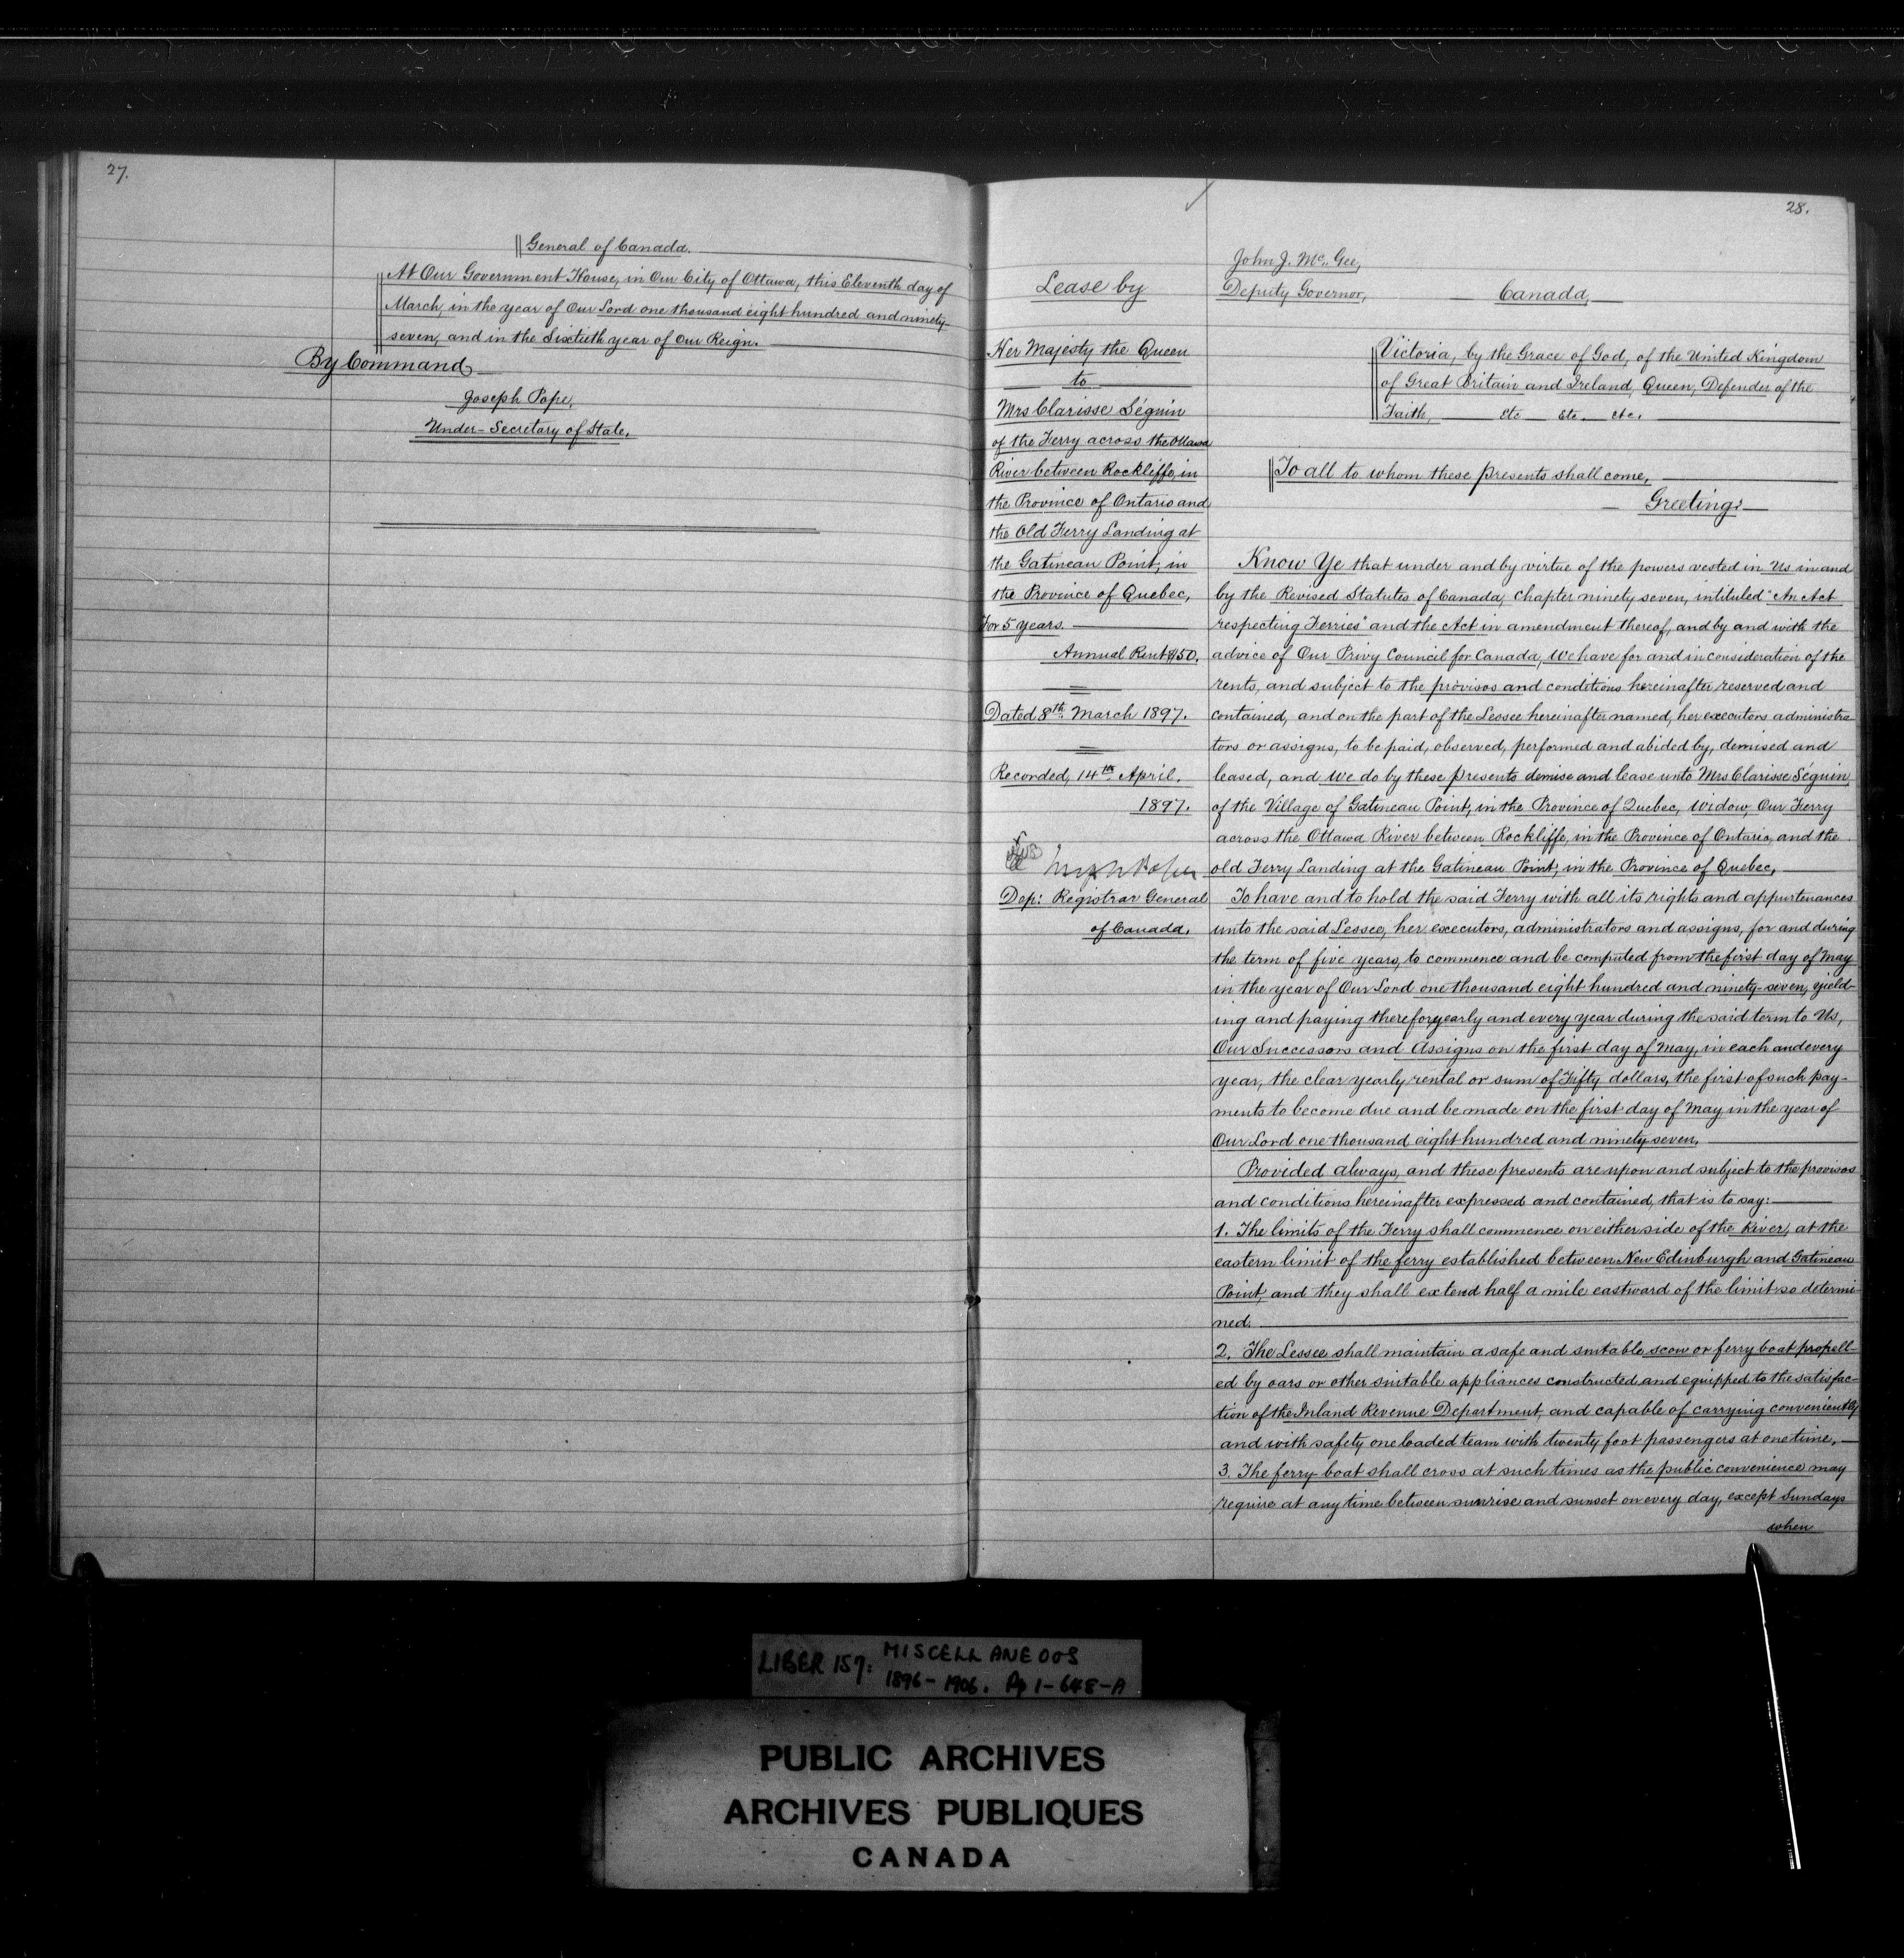 27.
General of Canada.
At Our Government House, in Our City of Ottawa, this Eleventh day of
March, in the year of Our Lord one thousand eight hundred and ninety-
seven, and in the Sixtieth year of Our Reign.
By Command
Joseph Pope,
Under-Secretary of State.
28.
Lease by
Her Majesty the Queen
to
Mrs Clarisse Séguin
of the Ferry across the Ottawa
River between Rockliffe, in
the Province of Ontario and
the Old Ferry Landing at
the Gatineau Point, in
the Province of Quebec,
For 5 years.
Annual Rent $50.
Dated 8th March 1897.
Recorded, 14th April.
1897.
Joseph Pope
Dep: Registrar General
of Canada.
John J. McGee,
Deputy Governor,
Canada,
Victoria, by the Grace of God, of the United Kingdom
of Great Britain and Ireland, Queen, Defender of the
Faith, etc etc. etc.
To all to whom these presents shall come,
Greeting:
Know Ye that under and by virtue of the powers vested in Us in and
by the Revised Statutes of Canada, Chapter ninety seven, intituled "An Act
respecting Ferries" and the Act in amendment thereof, and by and with the
advice of Our Privy Council for Canada, We have for and in consideration of the
rents, and subject to the provisos and conditions hereinafter reserved and
contained, and on the part of the Lessee hereinafter named, her executors administra-
tors or assigns, to be paid, observed, performed and abided by, demised and
leased, and We do by these presents demise and lease unto Mrs Clarisse Séguin,
of the Village of Gatineau Point, in the Province of Quebec, Widow, Our Ferry
across the Ottawa River between Rockliffe, in the Province of Ontario, and the
old Ferry Landing at the Gatineau Point, in the Province of Quebec,
To have and to hold the said Ferry with all its rights and appurtenances
unto the said Lessee, her executors, administrators and assigns, for and during
the term of five years, to commence and be computed from the first day of May
in the year of Our Lord one thousand eight hundred and ninety-seven, yield-
ing and paying therefor, yearly and every year during the said term to Us,
Our Successors and Assigns on the first day of May, in each and every
year, the clear yearly rental or sum of Fifty dollars, the first of such pay-
ments to become due and be made on the first day of May in the year of
Our Lord one thousand eight hundred and ninety seven.
Provided always, and these presents are upon and subject to the provisos
and conditions hereinafter expressed and contained, that is to say:
1. The limits of the Ferry shall commence on either side of the River, at the
eastern limit of the ferry established between New Edinburgh and Gatineau
Point, and they shall extend half a mile eastward of the limit so determi-
ned.
2. The Lessee shall maintain a safe and suitable scow or ferry boat propell-
ed by oars or other suitable appliances constructed and equipped to the satisfac-
tion of the Inland Revenue Department, and capable of carrying conveniently
and with safety one loaded team with twenty foot passengers at one time,
3. The ferry-boat shall cross at such times as the public convenience may
require at any time between sunrise and sunset on every day, except Sundays
when
LIBER 157: MISCELLANEOUS
1896-1906. Pp 1-648-A
PUBLIC ARCHIVES
ARCHIVES PUBLIQUES
CANADA